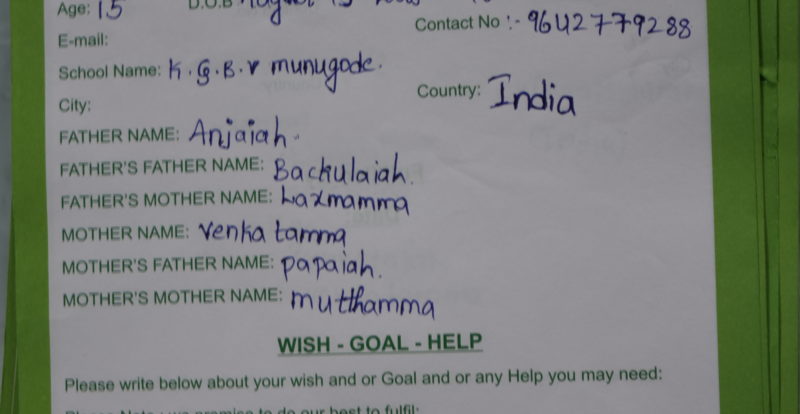 Age: 15 D.O.B
Contact No :- 9642779288
E-mail:
School Name: K.G.B.V munugode.
City:
Country: India
FATHER NAME: Anjaiah.
FATHER'S FATHER NAME: Backulaiah.
FATHER'S MOTHER NAME: Laxmamma
MOTHER NAME: venka tamma
MOTHER'S FATHER NAME: papaiah.
MOTHER'S MOTHER NAME: mutthamma
WISH - GOAL - HELP
Please write below about your wish and or Goal and or any Help you may need:
Please Note: we promise to do our best to fulfil: